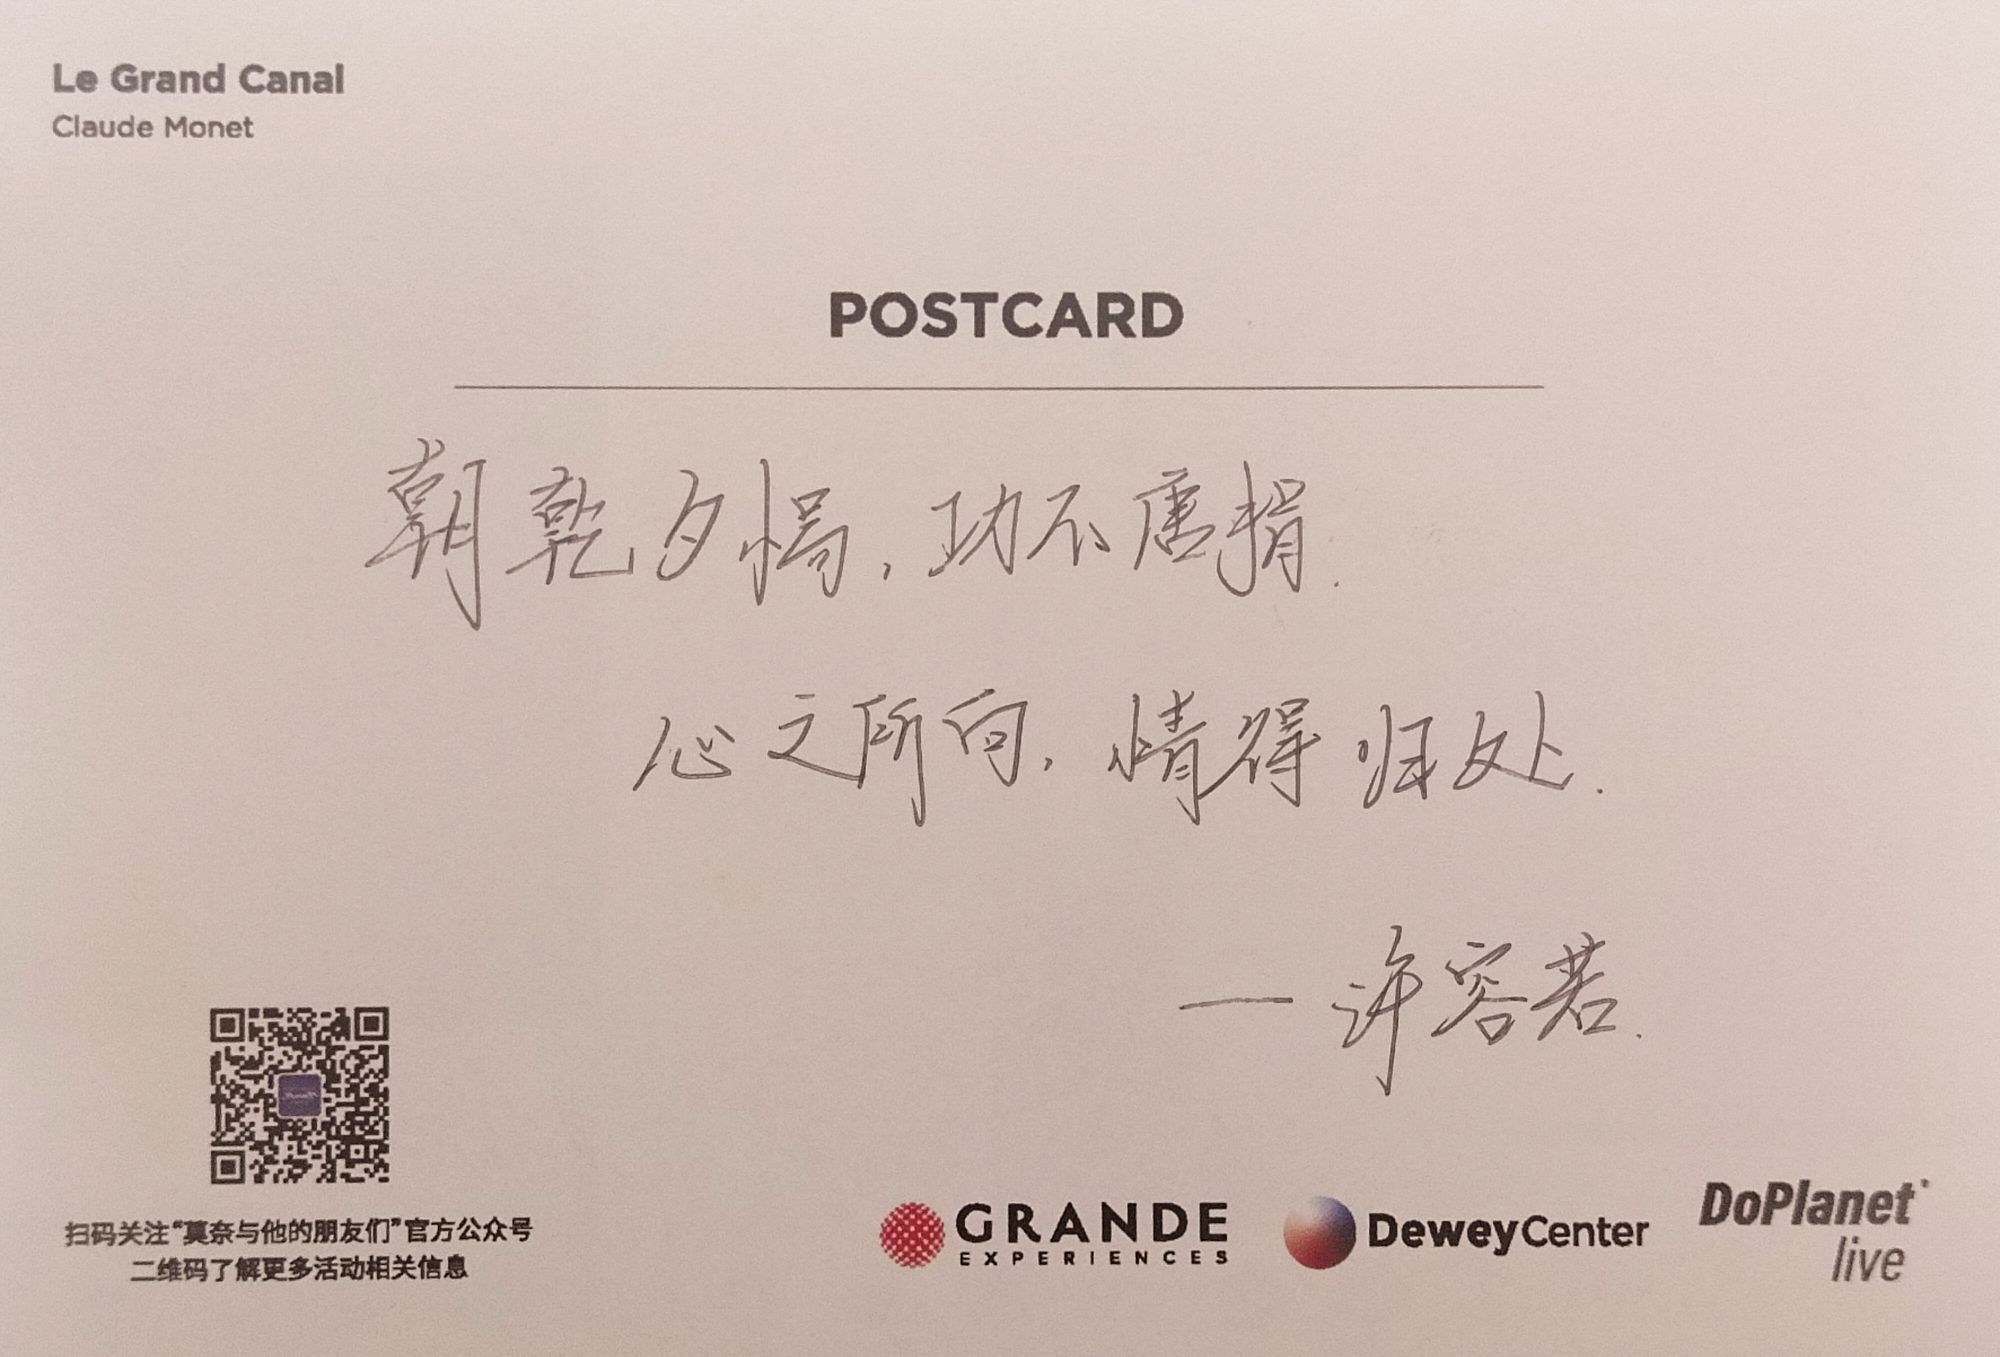 Le Grand Canal
Claude Monet
POSTCARD
朝乾夕惕，功不唐捐.
心之所向，情得归处.
— 许容若.
扫码关注“莫奈与他的朋友们”官方公众号
二维码了解更多活动相关信息
GRANDE
EXPERIENCES
DeweyCenter
DoPlanet
live